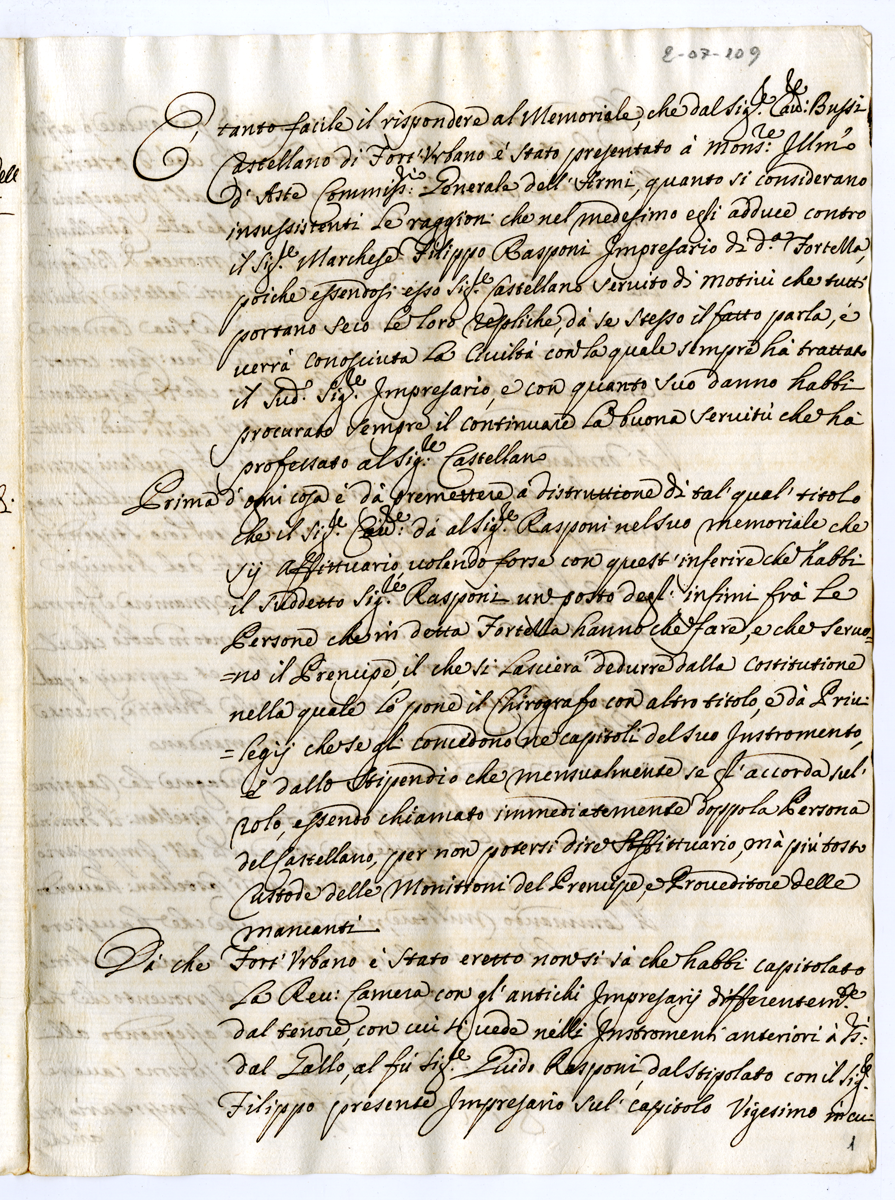 2-07-109
È tanto facile il rispondere al Memoriale, che dal Sig.re Cav.re Bussi
Castellano di Fort' Urbano è stato presentato à Mons.re Illmo
d'Aste Commiss.rio Generale dell'Armi, quanto si considerano
insussistenti le raggioni che nel medesimo egli adduce contro
il Sig.re Marchese Filippo Rasponi Impresario di d.a Fortezza,
poiche essendosi esso Sig.re Castellano servito di motivi che tutti
portano seco le loro repliche, dà se stesso il fatto parla, è
verrà conosciuta la Civiltà con la quale sempre hà trattato
il Sud.o Sig.re Impresario, e con quanto suo danno habbi
procurato sempre il continuare la buona servitù che hà
professato al Sig.re Castellano
Prima d'ogni cosa è dà premettere à distruttione di tal qual' titolo
che il Sig.re Cav.re dà al Sig.re Rasponi nel suo memoriale che
sij Affittuario volendo forse con quest' inferire che habbi
il suddetto Sig.re Rasponi un posto degl' infimi frà le
Persone che in detta Fortezza hanno che fare, e che servo=
=no il Prencipe il che si lascierà dedurre dalla costitutione
nella quale lo pone il Chirografo con altro titolo, e dà Privi=
=legij che se gli concedono ne capitoli del suo Instromento,
è dallo stipendio che mensualmente se gl'accorda sul'
rolo, essendo chiamato immediatemente doppo la Persona
del Castellano, per non potersi dire Affittuario, mà più tosto
Custode delle Monitioni del Prencipe, e Proveditore delle
mancanti
Dà che Fort' Urbano è stato eretto non si sà che habbi capitolato
la Rev: Camera con gl'antichi Impresarij differentem.te
dal tenore, con cui si vede nelli Instromenti anteriori à
dal Gallo, al fù Sig.re Guido Rasponi, dal stipolato con il Sig.re
Filippo presente Impresario sul' capitolo Vigesimo in cui
1